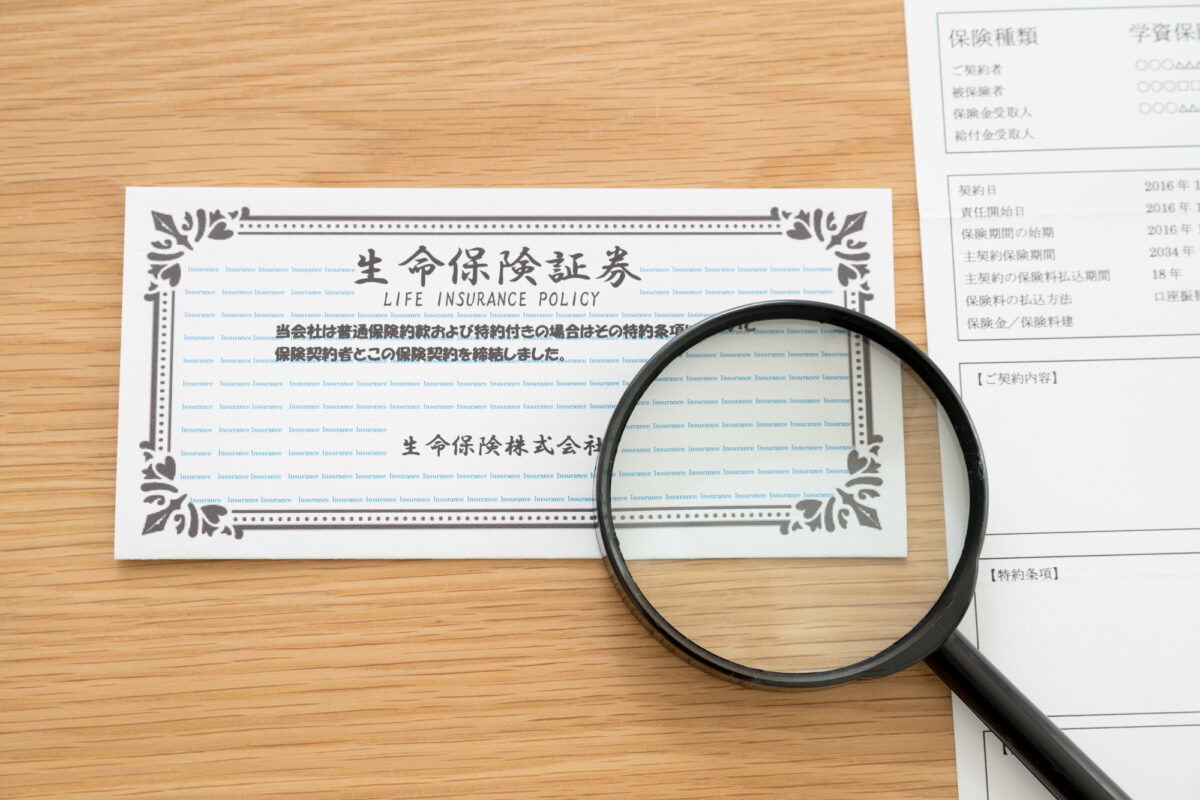 生命保険証券
LIFE INSURANCE POLICY
当会社は普通保険約款および特約付きの場合はその特約条項
保険契約者とこの保険契約を締結しました。
生命保険株式会社
Insurance Insurance Insurance Insurance Insurance
保険種類 学資保
ご契約者 ○○○△△
被保険者 ○○○□□
保険金受取人 ○○○△△
給付金受取人
契約日 2016 年 1
責任開始日 2016 年 1
保険期間の始期 2016 年 1
主契約保険期間 2034 年
主契約の保険料払込期間 18 年
保険料の払込方法 口座振
保険金／保険料建
【ご契約内容】
【特約条項】